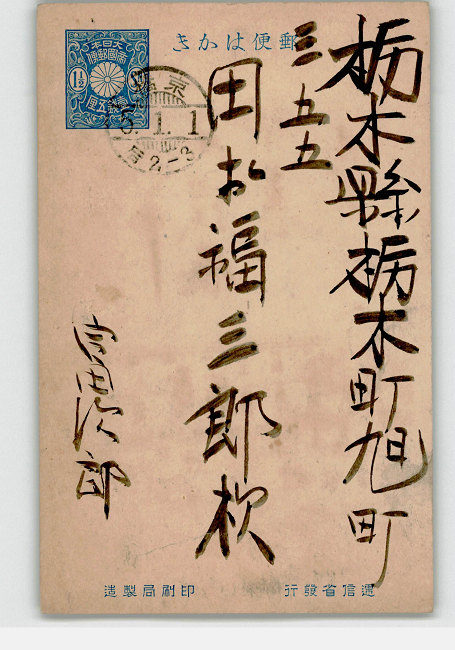 郵便はかき
大日本
帝國郵便
1½
壹錢五厘
京
5.1.1
后2-3
栃木縣栃木町旭町
三五五
田村福三郎様
富田次郎
遞信省發行
印刷局製造